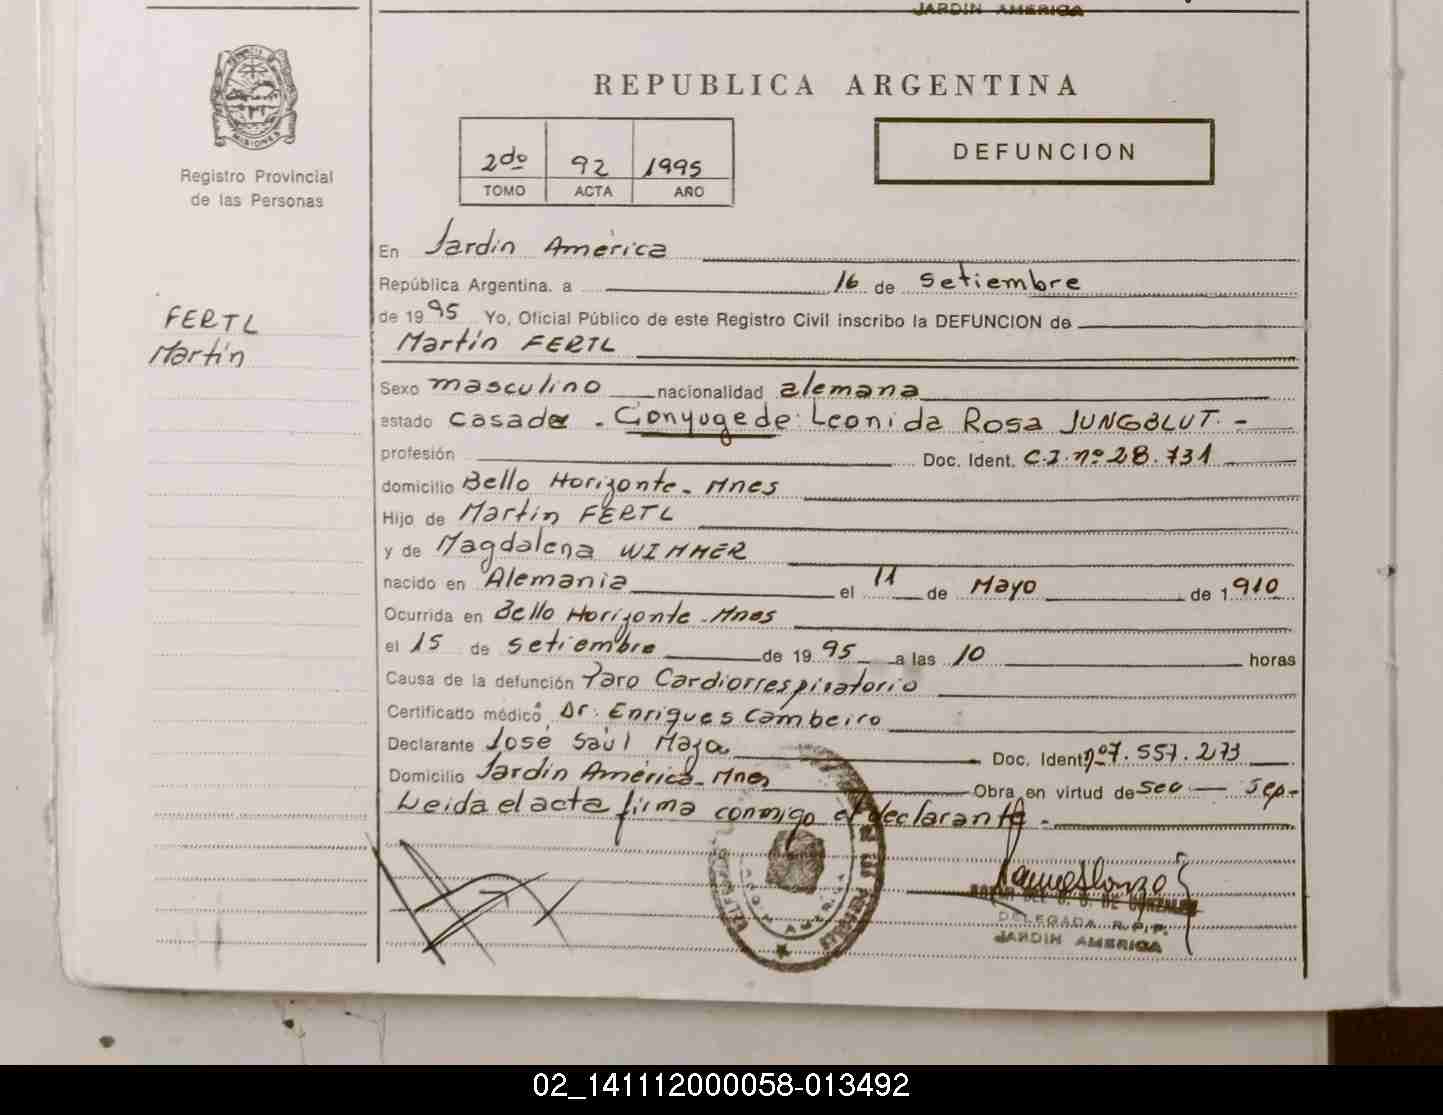 JARDIN AMERICA
REPUBLICA ARGENTINA
MISIONES
Registro Provincial
de las Personas
2do 92 1995
TOMO ACTA AÑO
DEFUNCION
En Jardín América
República Argentina. a 16 de Setiembre
de 1995 Yo, Oficial Público de este Registro Civil inscribo la DEFUNCION de
FERTL
Martín
Martín FERTL
Sexo masculino nacionalidad alemana
estado casado - Conyuge de: Leonida Rosa JUNGBLUT. -
profesión Doc. Ident. C.I. nº 28.731
domicilio Bello Horizonte - Mnes
Hijo de Martin FERTL
y de Magdalena WIMMER
nacido en Alemania el 11 de Mayo de 1910
Ocurrida en Bello Horizonte - Mnes
el 15 de Setiembre de 1995 a las 10 horas
Causa de la defunción Paro Cardiorrespiratorio
Certificado médico Dr. Enriques Cambeiro
Declarante José Saúl Maza Doc. Ident. nº 7.557.273
Domicilio Jardín América - Mnes Obra en virtud de seo — sep.-
Leida el acta firma conmigo el declarante -
DELEGADA R.P.P.
JARDIN AMERICA
02_141112000058-013492